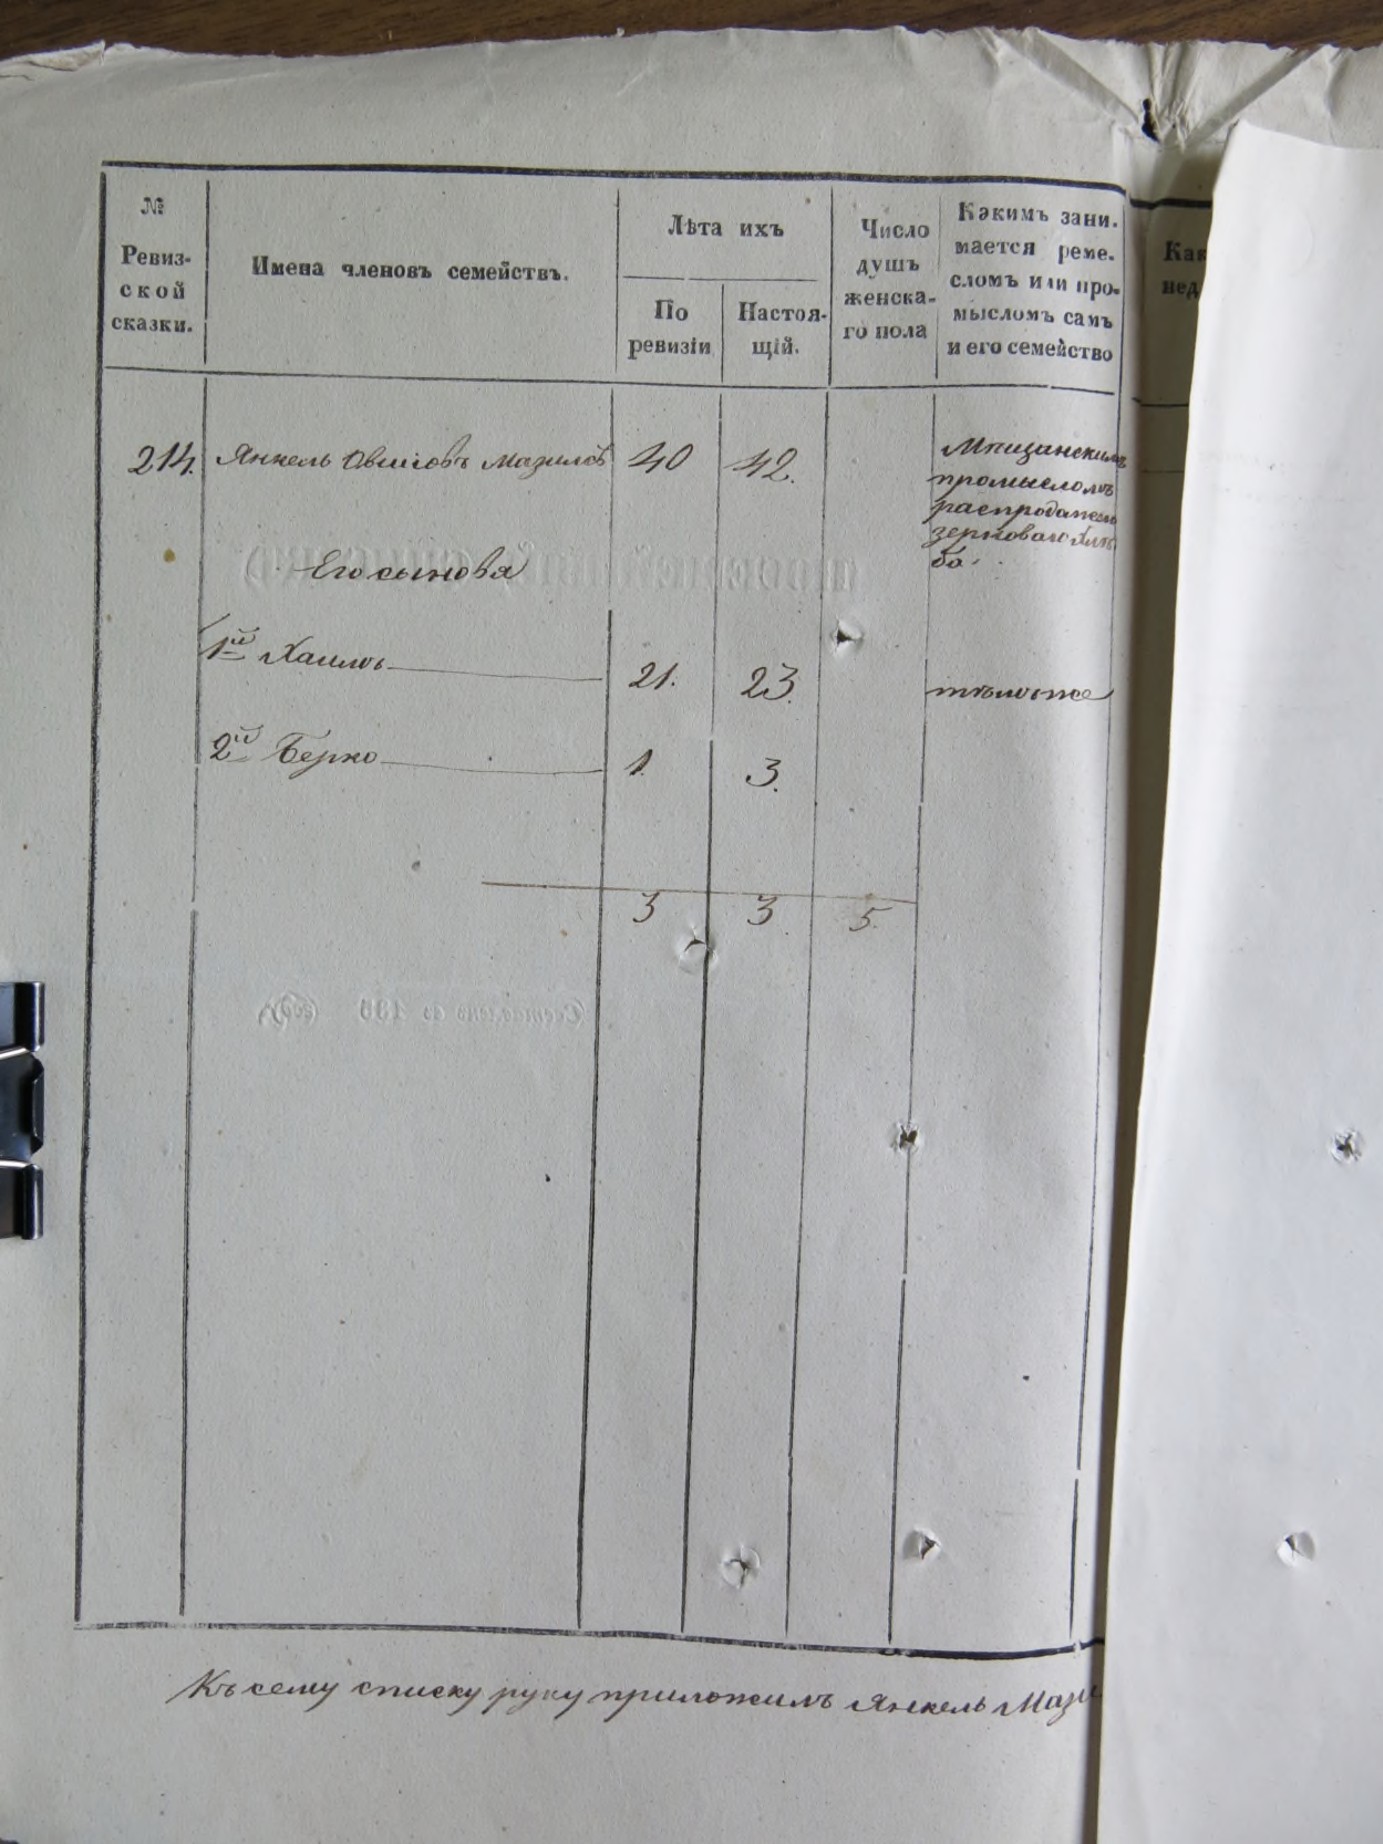 №
Ревиз-
ской
сказки.
Имена членовъ семействъ.
Лѣта ихъ
По
ревизіи
Настоя-
щій.
Число
душъ
женска-
го пола
Какимъ зани-
мается реме-
сломъ или про-
мысломъ самъ
и его семейство
214. Янкель 40 42.
Мѣщанскимъ
промысломъ
распродажею
зерноваго хлѣ
ба.
Его сынова
1й 21. 23. тѣмъ же
2й Берко 1. 3.
3 3. 5.
Къ сему списку руку приложилъ Янкель Мази
Как
нед